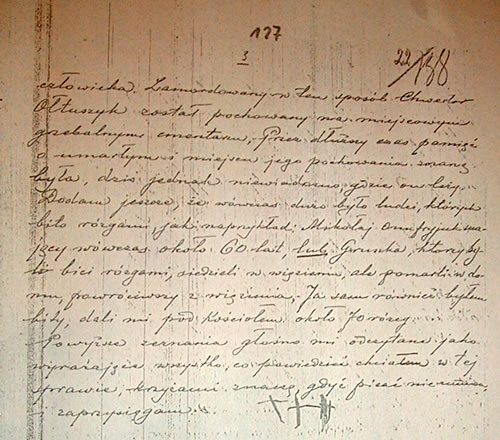 127
3
22/188
człowieka. Zamordowany w ten sposób Chwedor
Ołtuszyk został pochowany na miejscowym
grzebalnym cmentarzu, Przez dłuższy czas pamięć
o umarłym i miejscu jego pochowania znaną
była, dziś jednak niewiadomo gdzie on leży.
Dodam jeszcze, że wówczas dużo było ludzi, których
bito rózgami jak naprzykład: Mikołaj Onufryjuk ma-
jący wówczas około 60 lat, Gerunka, którzy
bici rózgami, siedzieli w więzieniu, ale pomarli w do-
mu, powróciwszy z więzienia, Ja sam również byłem
bity, dali mi pod kościołem około 70 rózeg.
Powyższe zeznania głośno mi odczytane jako
wyrażające wszystko, co powiedzieć chciałem w tej
sprawie, krzyżami znaczę, gdyż pisać nie umiem,
i zaprzysięgam.
+++